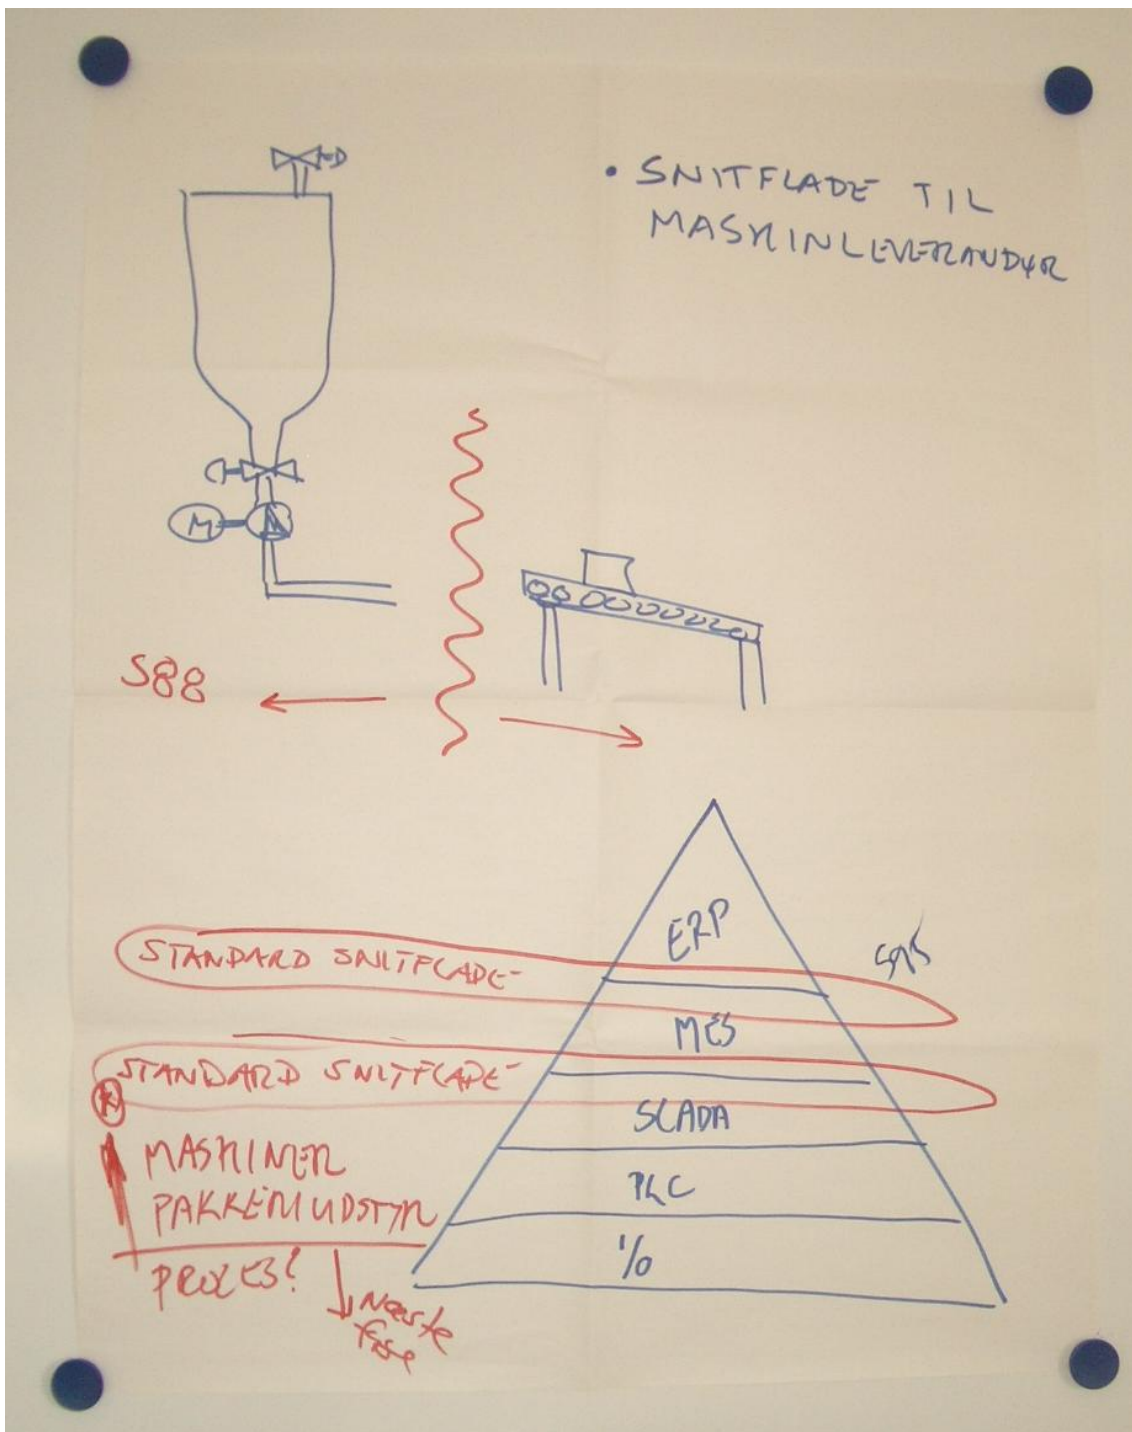 • SNITFLADE TIL
MASKINLEVERANDØR
M
S88
ERP
STANDARD SNITFLADE
MES
STANDARD SNITFLADE
SCADA
MASKINER
PAKKERIUDSTYR
PLC
I/O
PROCES?
Næste
fase